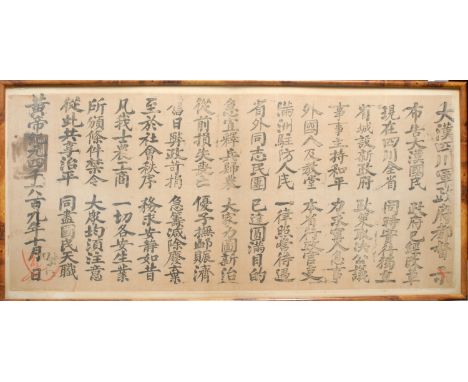 大漢四川軍政府都督示
布告大漢國民 政府已經改革
現在四川全省 同歸宣告獨立
省城設新政府 決公議
事事主持和平 力 人息事
外國人及教堂 本省行政官吏
滿洲駐防人民 一律照常待遇
省外同志民團 已達圓滿目的
急宜釋兵歸農 大家力圖新治
從前損失死亡 優予撫卹賑濟
舊日 政苛捐 急籌減除廢棄
至於社會秩序 務求安靜如昔
凡我士農工商 一切各安生業
所頒條件禁令 大眾均須注意
從此共享治平 同盡國民天職
黃帝紀元四千六百九年十月 日